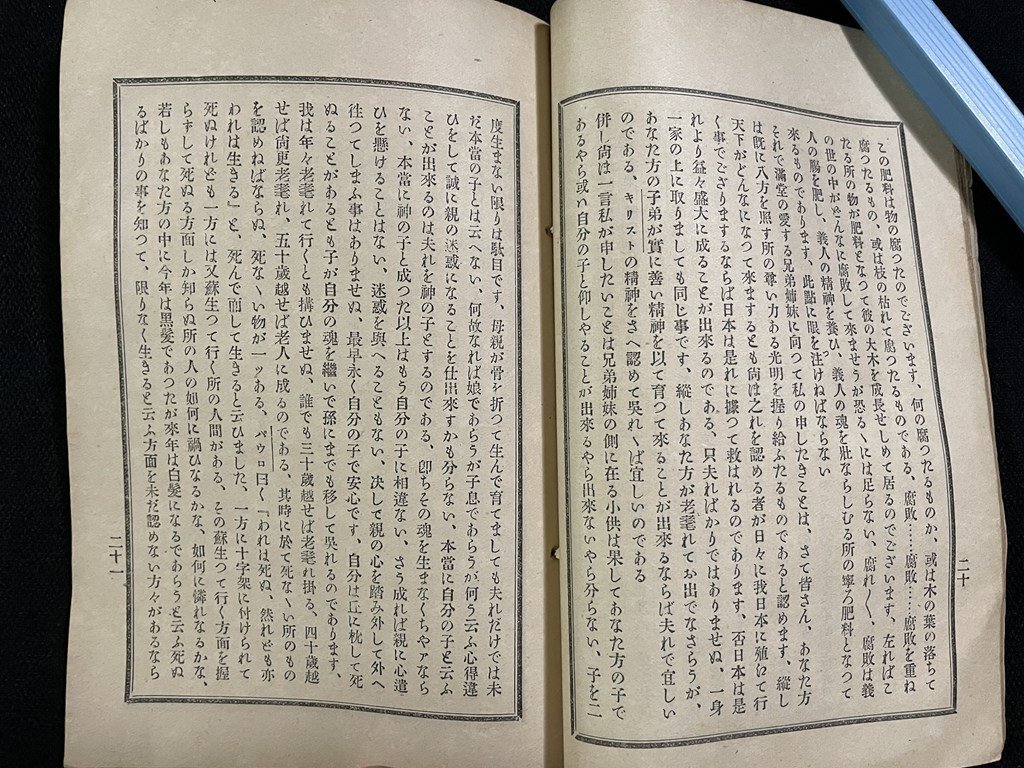 この肥料は物の腐つたのでございます、何の腐つたるものか、或は木の葉の落ちて
腐つたるもの、或は枝の枯れて腐つたるものである、腐敗……腐敗……腐敗を重ね
たる所の物が肥料となつて彼の大木を成長せしめて居るのでございます、左ればこ
の世の中がどんなに腐敗して來ませうが恐るゝには足らない、腐れ〱、腐敗は義
人の腸を肥し、義人の精神を養ひ、義人の魂を壯ならしむる所の寧ろ肥料となつて
來るものであります、此點に眼を注けねばならない
それで滿堂の愛する兄弟姉妹に向つて私の申したきことは、さて皆さん、あなた方
は既に八方を照す所の尊い力ある光明を握り給ふたるものであると認めます、縱し
天下がどんなになつて來まするとも尙ほ之れを認める者が日々に我日本に殖いて行
く事でございまするならば日本は是れに據つて救はれるのであります、否日本は是
れより益々盛大に成ることが出來るのである、只夫ればかりではありませぬ、一身
一家の上に取りましても同じ事です、縱しあなた方が老耄れてお出でなさらうが、
あなた方の子弟が實に善い精神を以て育つて來ることが出來るならば夫れで宜しい
のである、キリストの精神をさへ認めて吳れゝば宜しいのである
併し尙ほ一言私が申したいことは兄弟姉妹の側に在る小供は果してあなた方の子で
あるやら或い自分の子と仰しやることが出來るやら出來ないやら分らない、子を二
二十
度生まない限りは駄目です、母親が骨を折つて生んで育てましても夫れだけでは未
だ本當の子とは云へない、何故なれば娘であらうが子息であらうが何う云ふ心得違
ひをして誠に親の迷惑になることを仕出來すかも分らない、本當に自分の子と云ふ
ことが出來るのは夫れを神の子とするのである、卽ちその魂を生まなくちやァなら
ない、本當に神の子と成つた以上はもう自分の子に相違ない、さう成れば親に心遣
ひを懸けることはない、迷惑を與へることもない、决して親の心を踏み外して外へ
徃つてしまふ事はありませぬ、最早永く自分の子で安心です、自分は丘に枕して死
ぬることがあるとも子が自分の魂を繼いで孫にまでも移して吳れるのであります、
我は年々老耄れて行くとも搆ひませぬ、誰でも三十歲越せば老耄れ掛る、四十歲越
せば尙更老耄れ、五十歲越せば老人に成るのである、其時に於て死なゝい所のもの
を認めねばならぬ、死なゝい物が一ッある、パウロ曰く『われは死ぬ、然れども亦
われは生きる』と、死んで而して生きると云ひました、一方に十字架に付けられて
死ぬけれども一方には又蘇生つて行く所の人間がある、その蘇生つて行く方面を握
らずして死ぬる方面しか知らぬ所の人の如何に禍ひなるかな、如何に憐れなるかな、
若しもあなた方の中に今年は黑髮であつたが來年は白髮になるであらうと云ふ死ぬ
るばかりの事を知つて、限りなく生きると云ふ方面を未だ認めない方々があるなら
二十一